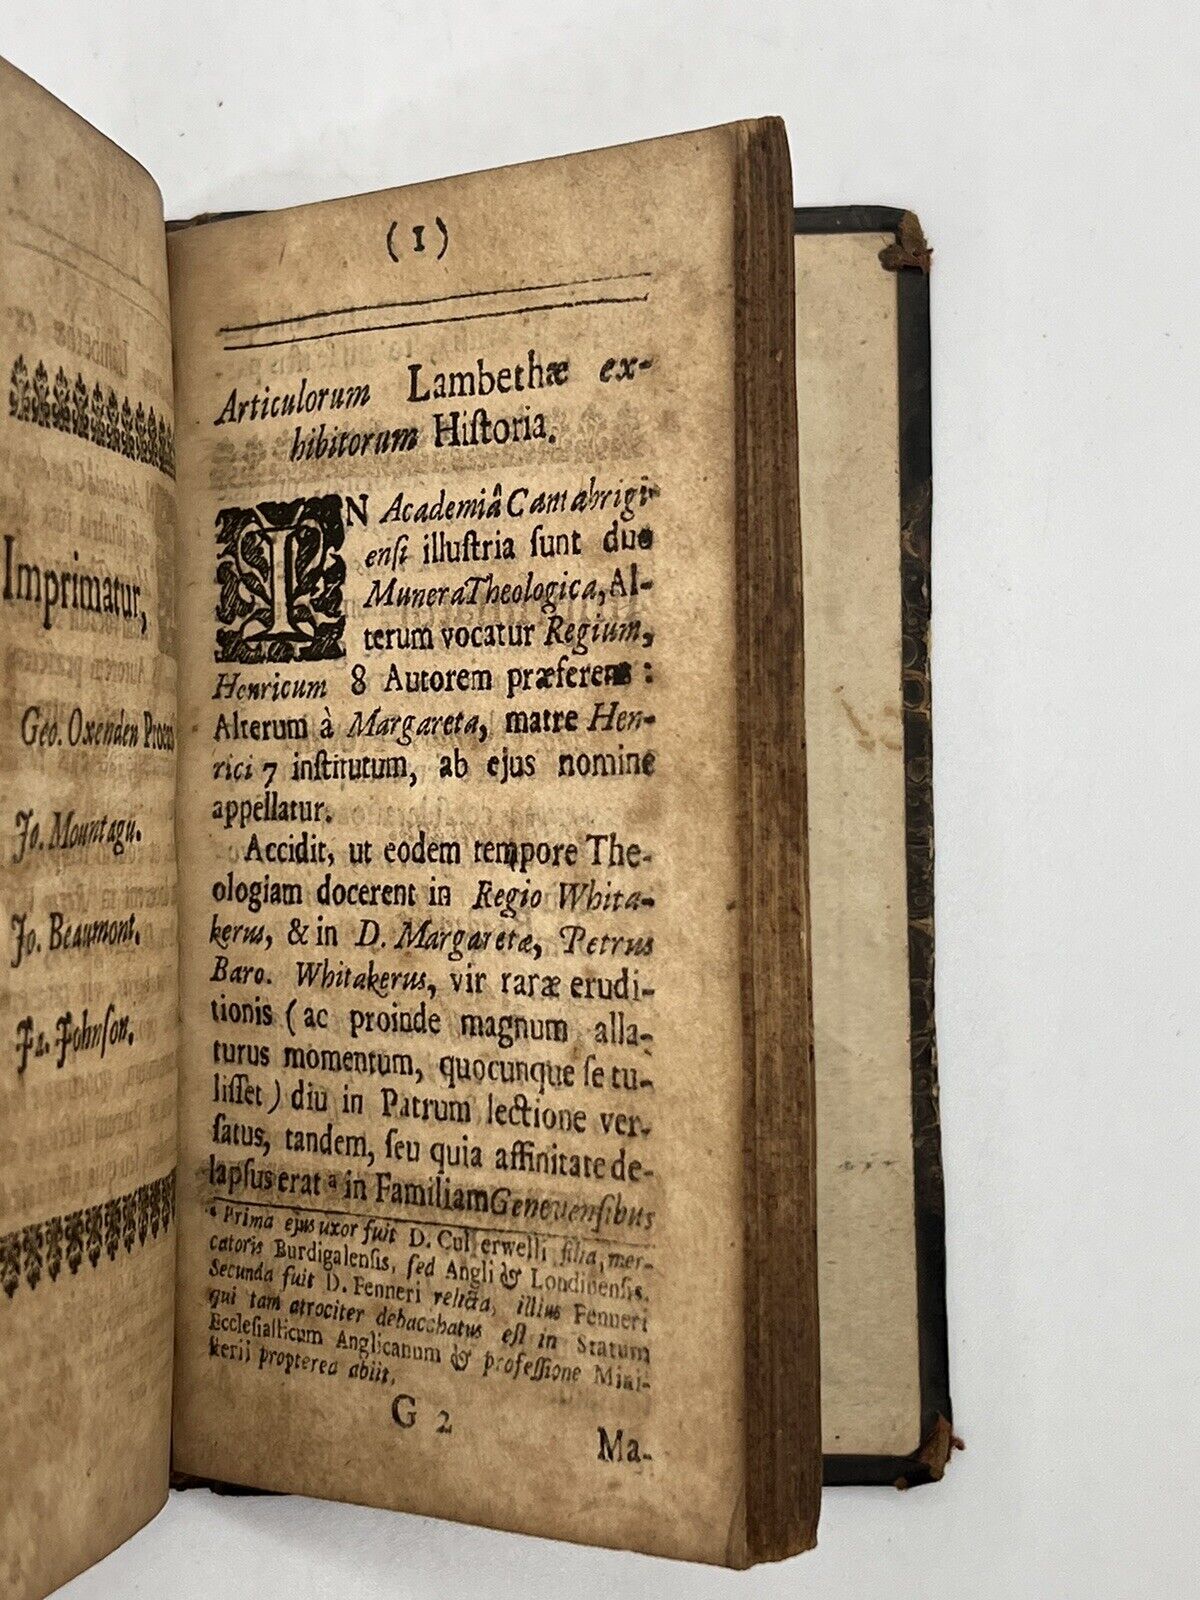 Imprimatur,
Geo. Oxenden Procan
Jo. Mountagu.
Jo. Beaumont.
Fa. Johnson.
(1)
Articulorum Lambethæ ex-
hibitorum Hiſtoria.
IN Academiâ Cantabrigi-
enſi illuſtria ſunt duo
Munera Theologica, Al-
terum vocatur Regium,
Henricum 8 Autorem præferens :
Alterum à Margareta, matre Hen-
rici 7 inſtitutum, ab ejus nomine
appellatur.
Accidit, ut eodem tempore The-
ologiam docerent in Regio Whita-
kerus, & in D. Margaretæ, Petrus
Baro. Whitakerus, vir raræ erudi-
tionis (ac proinde magnum alla-
turus momentum, quocunque ſe tu-
liſſet) diu in Patrum lectione ver-
ſatus, tandem, ſeu quia affinitate de-
lapſus erat a in Familiam Genevenſibus
a Prima ejus uxor fuit D. Culverwelli filia, mer-
catoris Burdigalenſis, ſed Angli & Londinenſis.
Secunda fuit D. Fenneri relicta, illius Fenneri
qui tam atrociter debacchatus eſt in Statum
Eccleſiaſticum Anglicanum & profeſſione Mini-
ſterii propterea abiit.
G 2
Ma-